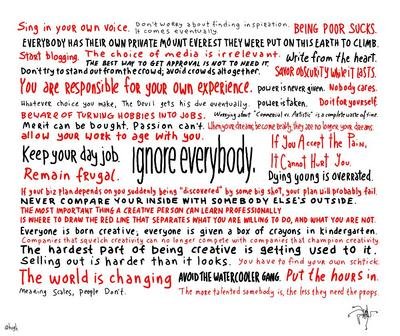 Sing in your own voice. Don't worry about finding inspiration. It comes eventually. BEING POOR SUCKS.
EVERYBODY HAS THEIR OWN PRIVATE MOUNT EVEREST THEY WERE PUT ON THIS EARTH TO CLIMB.
Start blogging. The choice of media is irrelevant. Write from the heart.
THE BEST WAY TO GET APPROVAL IS NOT TO NEED IT.
Don't try to stand out from the crowd; avoid crowds altogether. SAVOR OBSCURITY WHILE IT LASTS.
You are responsible for your own experience. power is never given. Nobody cares.
Whatever choice you make, The Devil gets his due eventually. power is taken. Do it for yourself.
BEWARE OF TURNING HOBBIES INTO JOBS. Worrying about "Commercial vs. Artistic" is a complete waste of time.
Merit can be bought. Passion can't. When your dreams become reality, they are no longer your dreams.
allow your work to age with you. If You Accept The Pain,
Keep your day job. ignore everybody. It Cannot Hurt You.
Remain frugal. Dying young is overrated.
If your biz plan depends on you suddenly being "discovered" by some big shot, your plan will probably fail.
NEVER COMPARE YOUR INSIDE WITH SOMEBODY ELSE'S OUTSIDE.
THE MOST IMPORTANT THING A CREATIVE PERSON CAN LEARN PROFESSIONALLY
IS WHERE TO DRAW THE RED LINE THAT SEPARATES WHAT YOU ARE WILLING TO DO, AND WHAT YOU ARE NOT.
Everyone is born creative; everyone is given a box of crayons in kindergarten.
Companies that squelch creativity can no longer compete with companies that champion creativity.
The hardest part of being creative is getting used to it.
Selling out is harder than it looks. You have to find your own schtick.
The world is changing AVOID THE WATERCOOLER GANG. Put the hours in.
Meaning Scales, People Don't. The more talented somebody is, the less they need the props.
@hugh